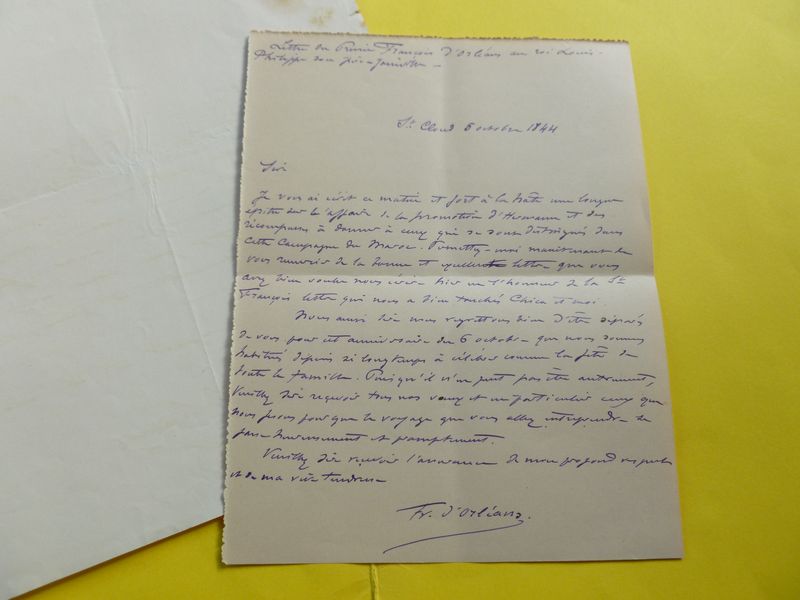 Lettre du Prince François D'Orléans au roi Louis-
Philippe son père - Joinville -
St Cloud 5 octobre 1844
Sire
Je vous ai écrit ce matin et fort à la hâte une longue
épitre sur l'affaire de la promotion d'Hernoux et des
récompenses à donner à ceux qui se sont distingués dans
cette Campagne du Maroc. Permettez-moi maintenant de
vous remercier de la bonne et excellente lettre que vous
avez bien voulu nous écrire hier en l'honneur de la St
François lettre qui nous a bien touchés Chica et moi.
Nous aussi Sire nous regrettons bien d'être séparés
de vous pour cet anniversaire du 6 octobre que nous sommes
habitués depuis si longtemps à célébrer comme la fête de
toute la famille. Puisqu'il n'en peut pas être autrement,
Veuillez Sire recevoir tous nos vœux et en particulier ceux que
nous faisons pour que le voyage que vous allez entreprendre se
passe heureusement et promptement.
Veuillez Sire recevoir l'assurance de mon profond respect
et de ma vive tendresse
Fr. d'Orléans.